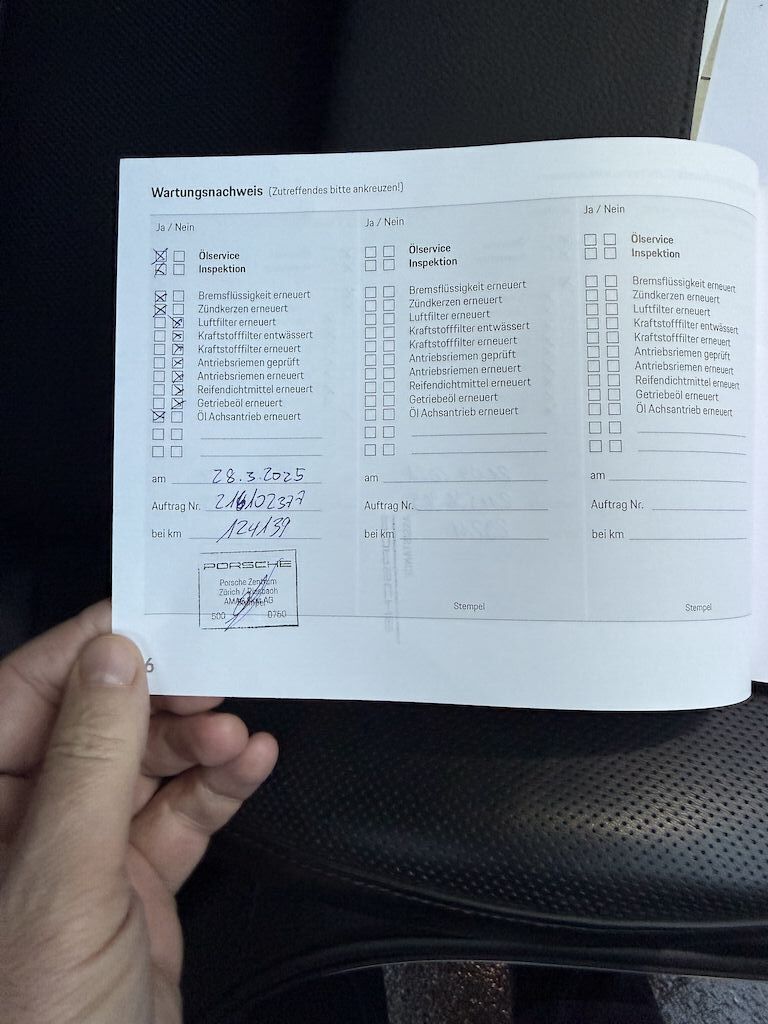 Wartungsnachweis (Zutreffendes bitte ankreuzen!)
Ja / Nein
Ölservice
Inspektion
Bremsflüssigkeit erneuert
Zündkerzen erneuert
Luftfilter erneuert
Kraftstofffilter entwässert
Kraftstofffilter erneuert
Antriebsriemen geprüft
Antriebsriemen erneuert
Reifendichtmittel erneuert
Getriebeöl erneuert
Öl Achsantrieb erneuert
am 28.3.2025
Auftrag Nr.
bei km 124139
PORSCHE
Porsche Zentrum
Zürich /
AG
500 0760
6
Ja / Nein
Ölservice
Inspektion
Bremsflüssigkeit erneuert
Zündkerzen erneuert
Luftfilter erneuert
Kraftstofffilter entwässert
Kraftstofffilter erneuert
Antriebsriemen geprüft
Antriebsriemen erneuert
Reifendichtmittel erneuert
Getriebeöl erneuert
Öl Achsantrieb erneuert
am
Auftrag Nr.
bei km
Stempel
Ja / Nein
Ölservice
Inspektion
Bremsflüssigkeit erneuert
Zündkerzen erneuert
Luftfilter erneuert
Kraftstofffilter entwässert
Kraftstofffilter erneuert
Antriebsriemen geprüft
Antriebsriemen erneuert
Reifendichtmittel erneuert
Getriebeöl erneuert
Öl Achsantrieb erneuert
am
Auftrag Nr.
bei km
Stempel